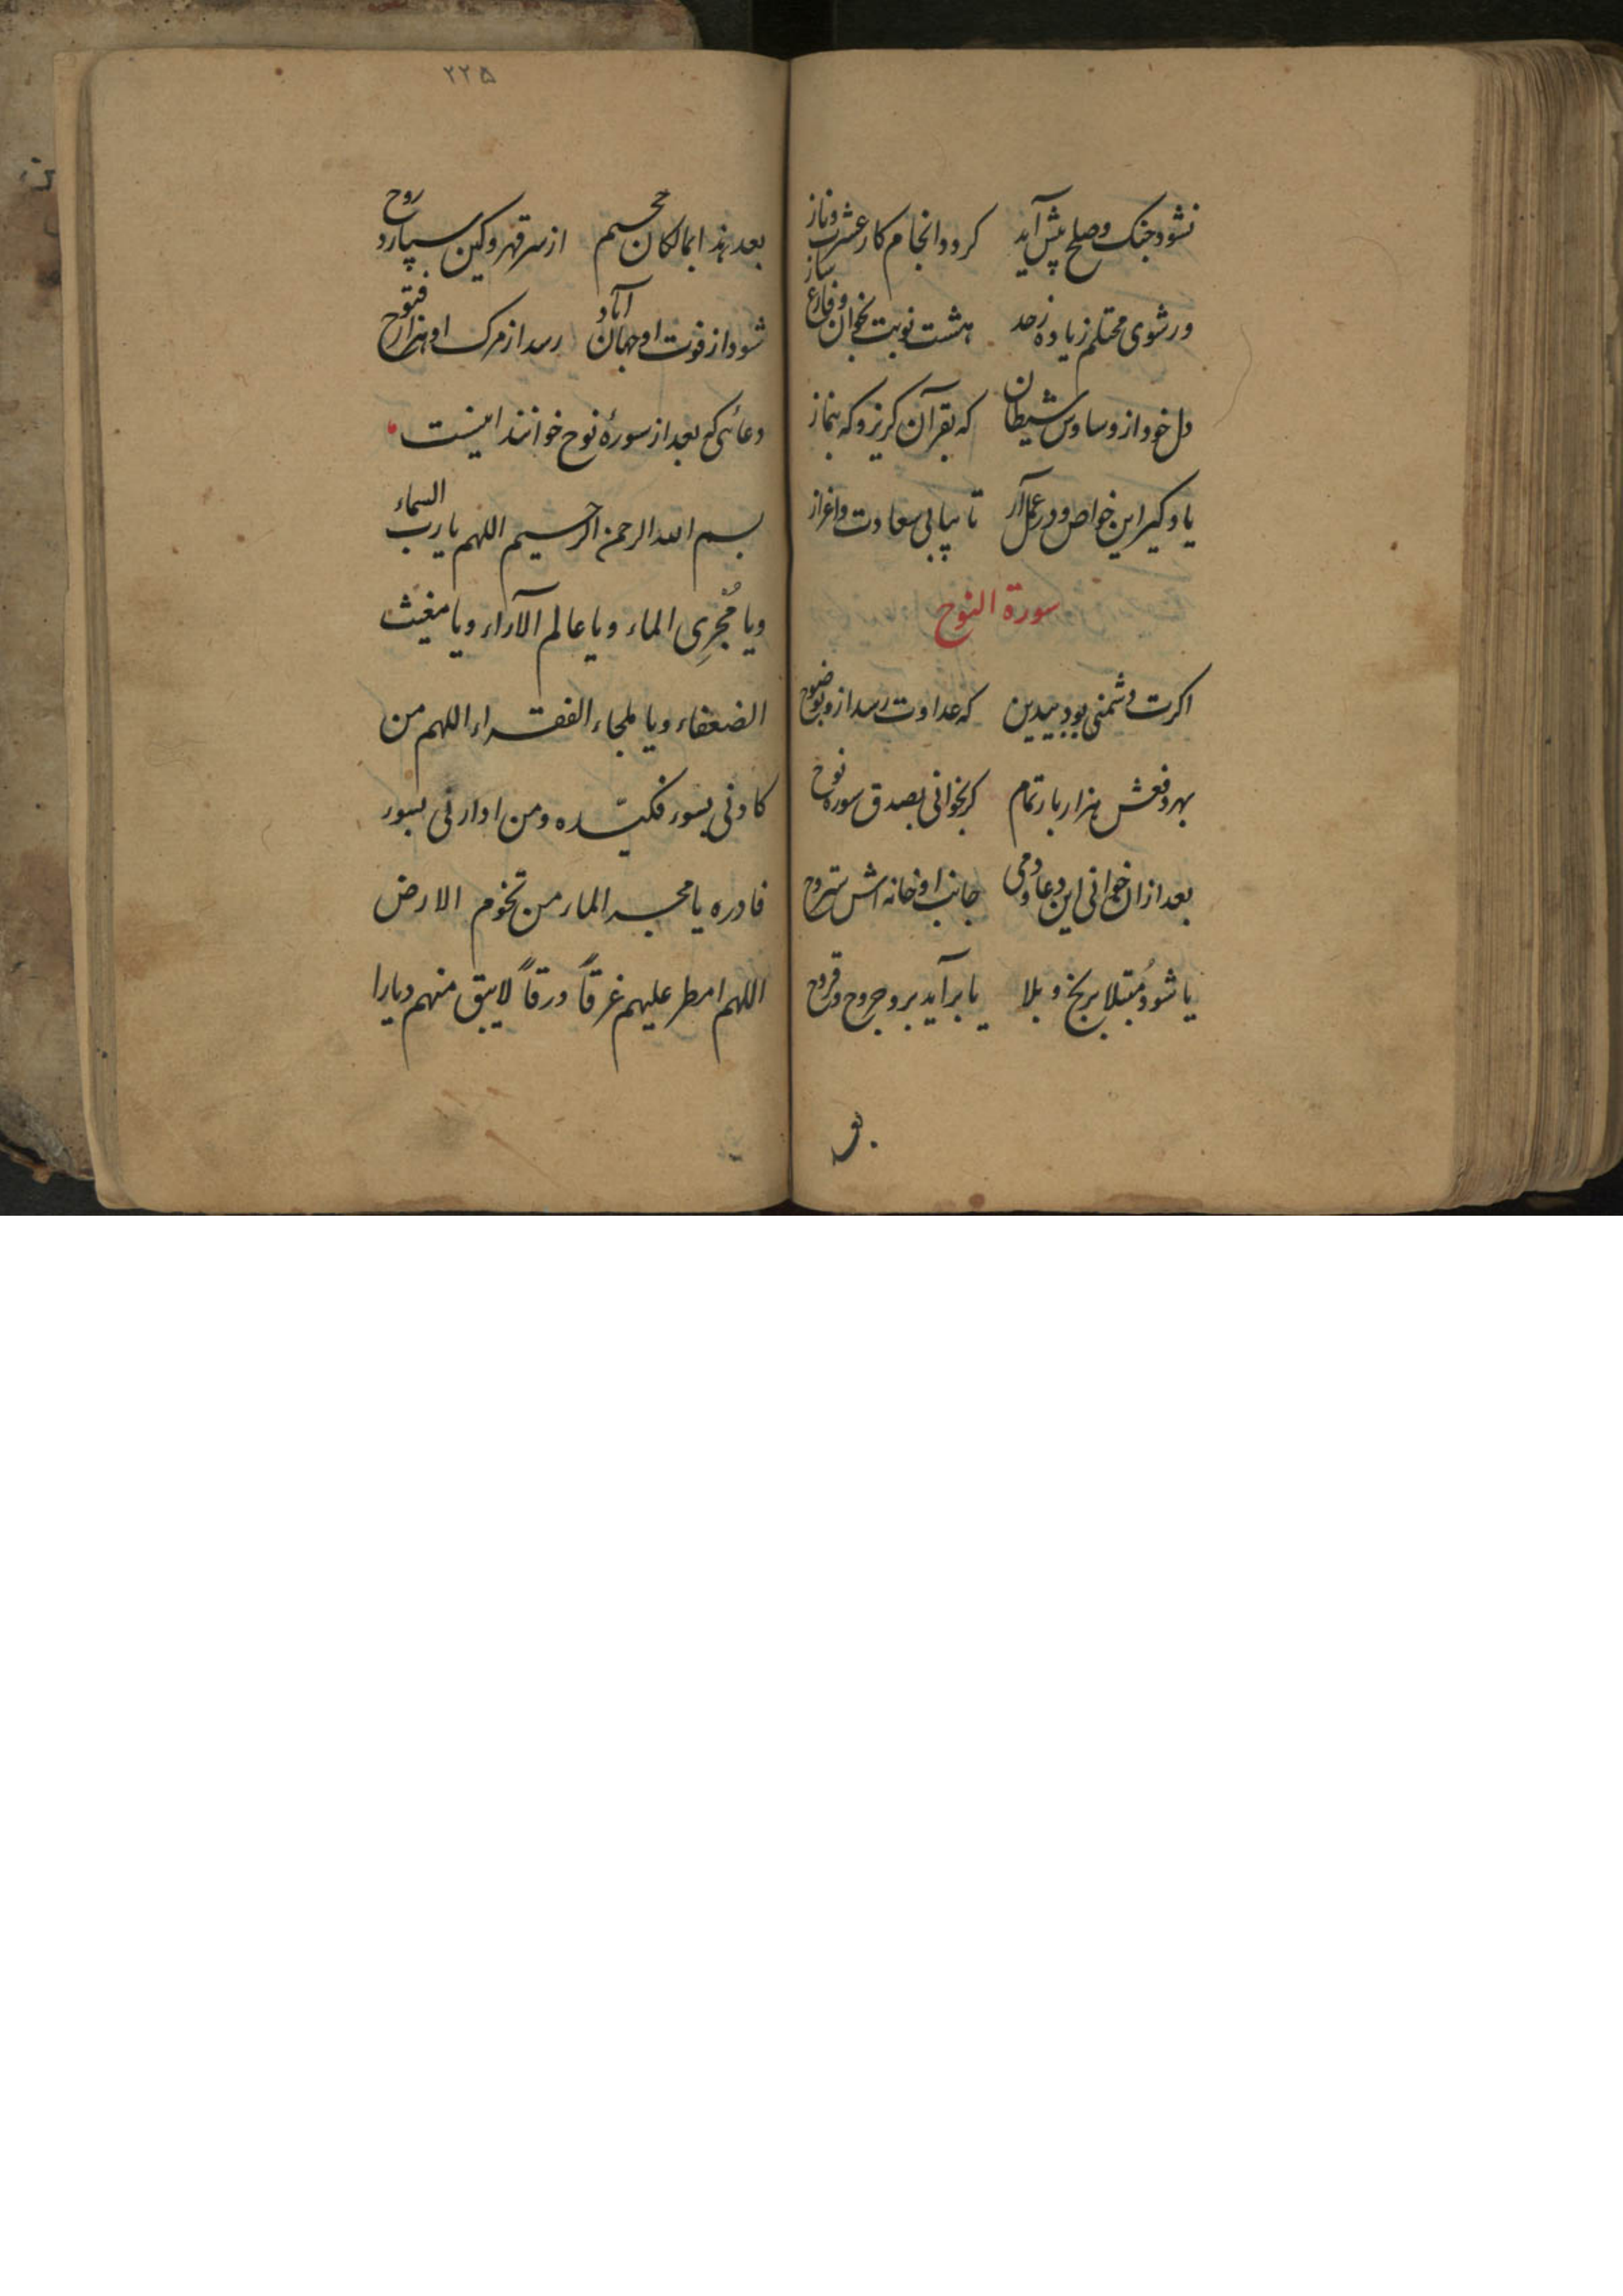 نشود جنک وصلح پیش آید کردد انجام کار عشرت وناز
ورشوی محتلم زیاده زحد هشت نوبت بخوان وفارغ ساز
دل خود از وساوس شیطان که بقرآن کریز وکه بنماز
یاد کیر این خواص ودر عمل آر تا بیابی سعادت واعزاز
سورة النوح
اکرت دشمنی بود بیدین که عداوت رسد ازو بوضوح
بهر دفعش هزار بار تمام کر بخوانی بصدق سوره نوح
بعد ازان خوانی این دعا ودمی جانب او خانه اش
یا شود مُبتلا برنج و بلا یا برآید برو جروح وقروح
۲۲۵
بعد بند ابمالکان جحیم از سر قهر وکین سپارد روح
شود از فوت او جهان آباد رسد از مرک او هزار فتوح
دعائی که بعد از سورهٔ نوح خوانند اینست
بسم الله الرحمن الرحیم اللهم یا رب السماء
ویا مُجْرِی الماء ویا عالم الآراء ویا مغیث
الضعفاء ویا ملجاء الفقراء اللهم من
کادنی بسوء فکیده ومن ارادنی بسوء
فادره یا الماء من تخوم الارض
اللهم امطر علیهم غرقاً ورقاً لا یبق منهم دیارا